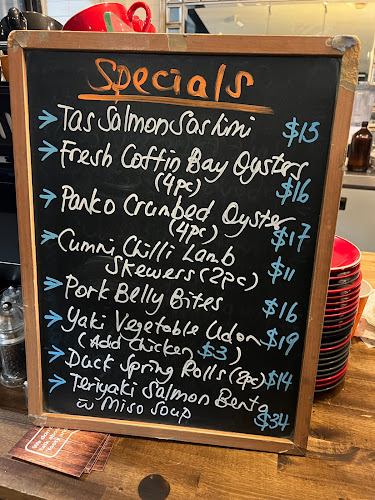 Specials
Tas Salmon Sashimi $15
Fresh Coffin Bay Oysters
(4pc) $16
Panko Crumbed Oyster
(4pc) $17
Cumni Chilli Lamb
Skewers (2pc) $11
Pork Belly Bites $16
Yaki Vegetable Udon $19
(Add chicken $3)
Duck Spring Rolls (3pc) $14
Teriyaki Salmon Bento
w Miso Soup $34